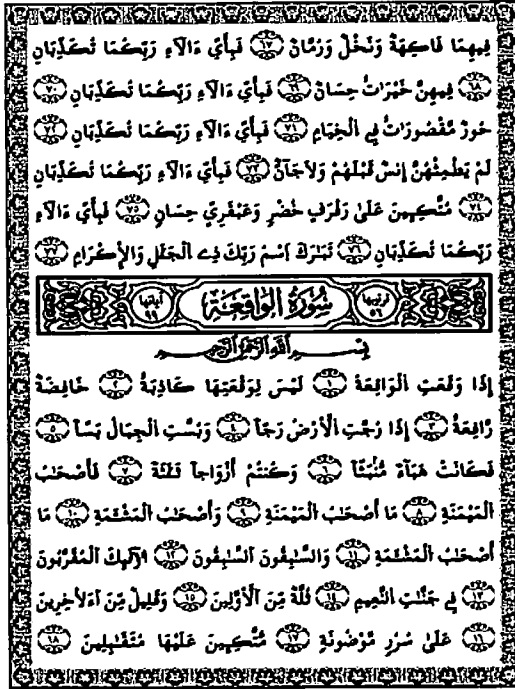 فِيهِمَا فَاكِهَةٌ وَنَخْلٌ وَرُمَّانٌ ٦٧ فَبِأَيِّ ءَالَآءِ رَبِّكُمَا تُكَذِّبَانِ
٦٨ فِيهِنَّ خَيْرَاتٌ حِسَانٌ ٦٩ فَبِأَيِّ ءَالَآءِ رَبِّكُمَا تُكَذِّبَانِ ٧٠
حُورٌ مَّقْصُورَاتٌ فِي الْخِيَامِ ٧١ فَبِأَيِّ ءَالَآءِ رَبِّكُمَا تُكَذِّبَانِ ٧٢
لَمْ يَطْمِثْهُنَّ إِنسٌ قَبْلَهُمْ وَلَا جَآنٌّ ٧٣ فَبِأَيِّ ءَالَآءِ رَبِّكُمَا تُكَذِّبَانِ
٧٤ مُتَّكِـِٔينَ عَلَىٰ رَفْرَفٍ خُضْرٍ وَعَبْقَرِيٍّ حِسَانٍ ٧٥ فَبِأَيِّ ءَالَآءِ
رَبِّكُمَا تُكَذِّبَانِ ٧٦ تَبَٰرَكَ اَسْمُ رَبِّكَ ذِي الْجَلَٰلِ وَالْإِكْرَامِ ٧٧
ترتيبها ٥٦ سُورَةُ الْوَاقِعَةِ آياتها ٩٩
بِسْمِ اللَّهِ الرَّحْمَٰنِ الرَّحِيمِ
إِذَا وَقَعَتِ الْوَاقِعَةُ ١ لَيْسَ لِوَقْعَتِهَا كَاذِبَةٌ ٢ خَافِضَةٌ
رَّافِعَةٌ ٣ إِذَا رُجَّتِ الْأَرْضُ رَجّاً ٤ وَبُسَّتِ الْجِبَالُ بَسّاً ٥
فَكَانَتْ هَبَآءً مُّنۢبَثّاً ٦ وَكُنتُمْ أَزْوَاجاً ثَلَٰثَةً ٧ فَأَصْحَٰبُ
الْمَيْمَنَةِ ٨ مَا أَصْحَٰبُ الْمَيْمَنَةِ ٩ وَأَصْحَٰبُ الْمَشْـَٔمَةِ ١٠ مَا
أَصْحَٰبُ الْمَشْـَٔمَةِ ١١ وَالسَّٰبِقُونَ السَّٰبِقُونَ ١٢ أُوْلَٰٓئِكَ الْمُقَرَّبُونَ
١٣ فِي جَنَّٰتِ النَّعِيمِ ١٤ ثُلَّةٌ مِّنَ الْأَوَّلِينَ ١٥ وَقَلِيلٌ مِّنَ اَءَلَاخِرِينَ
١٦ عَلَىٰ سُرُرٍ مَّوْضُونَةٍ ١٧ مُتَّكِـِٔينَ عَلَيْهَا مُتَقَٰبِلِينَ ١٨